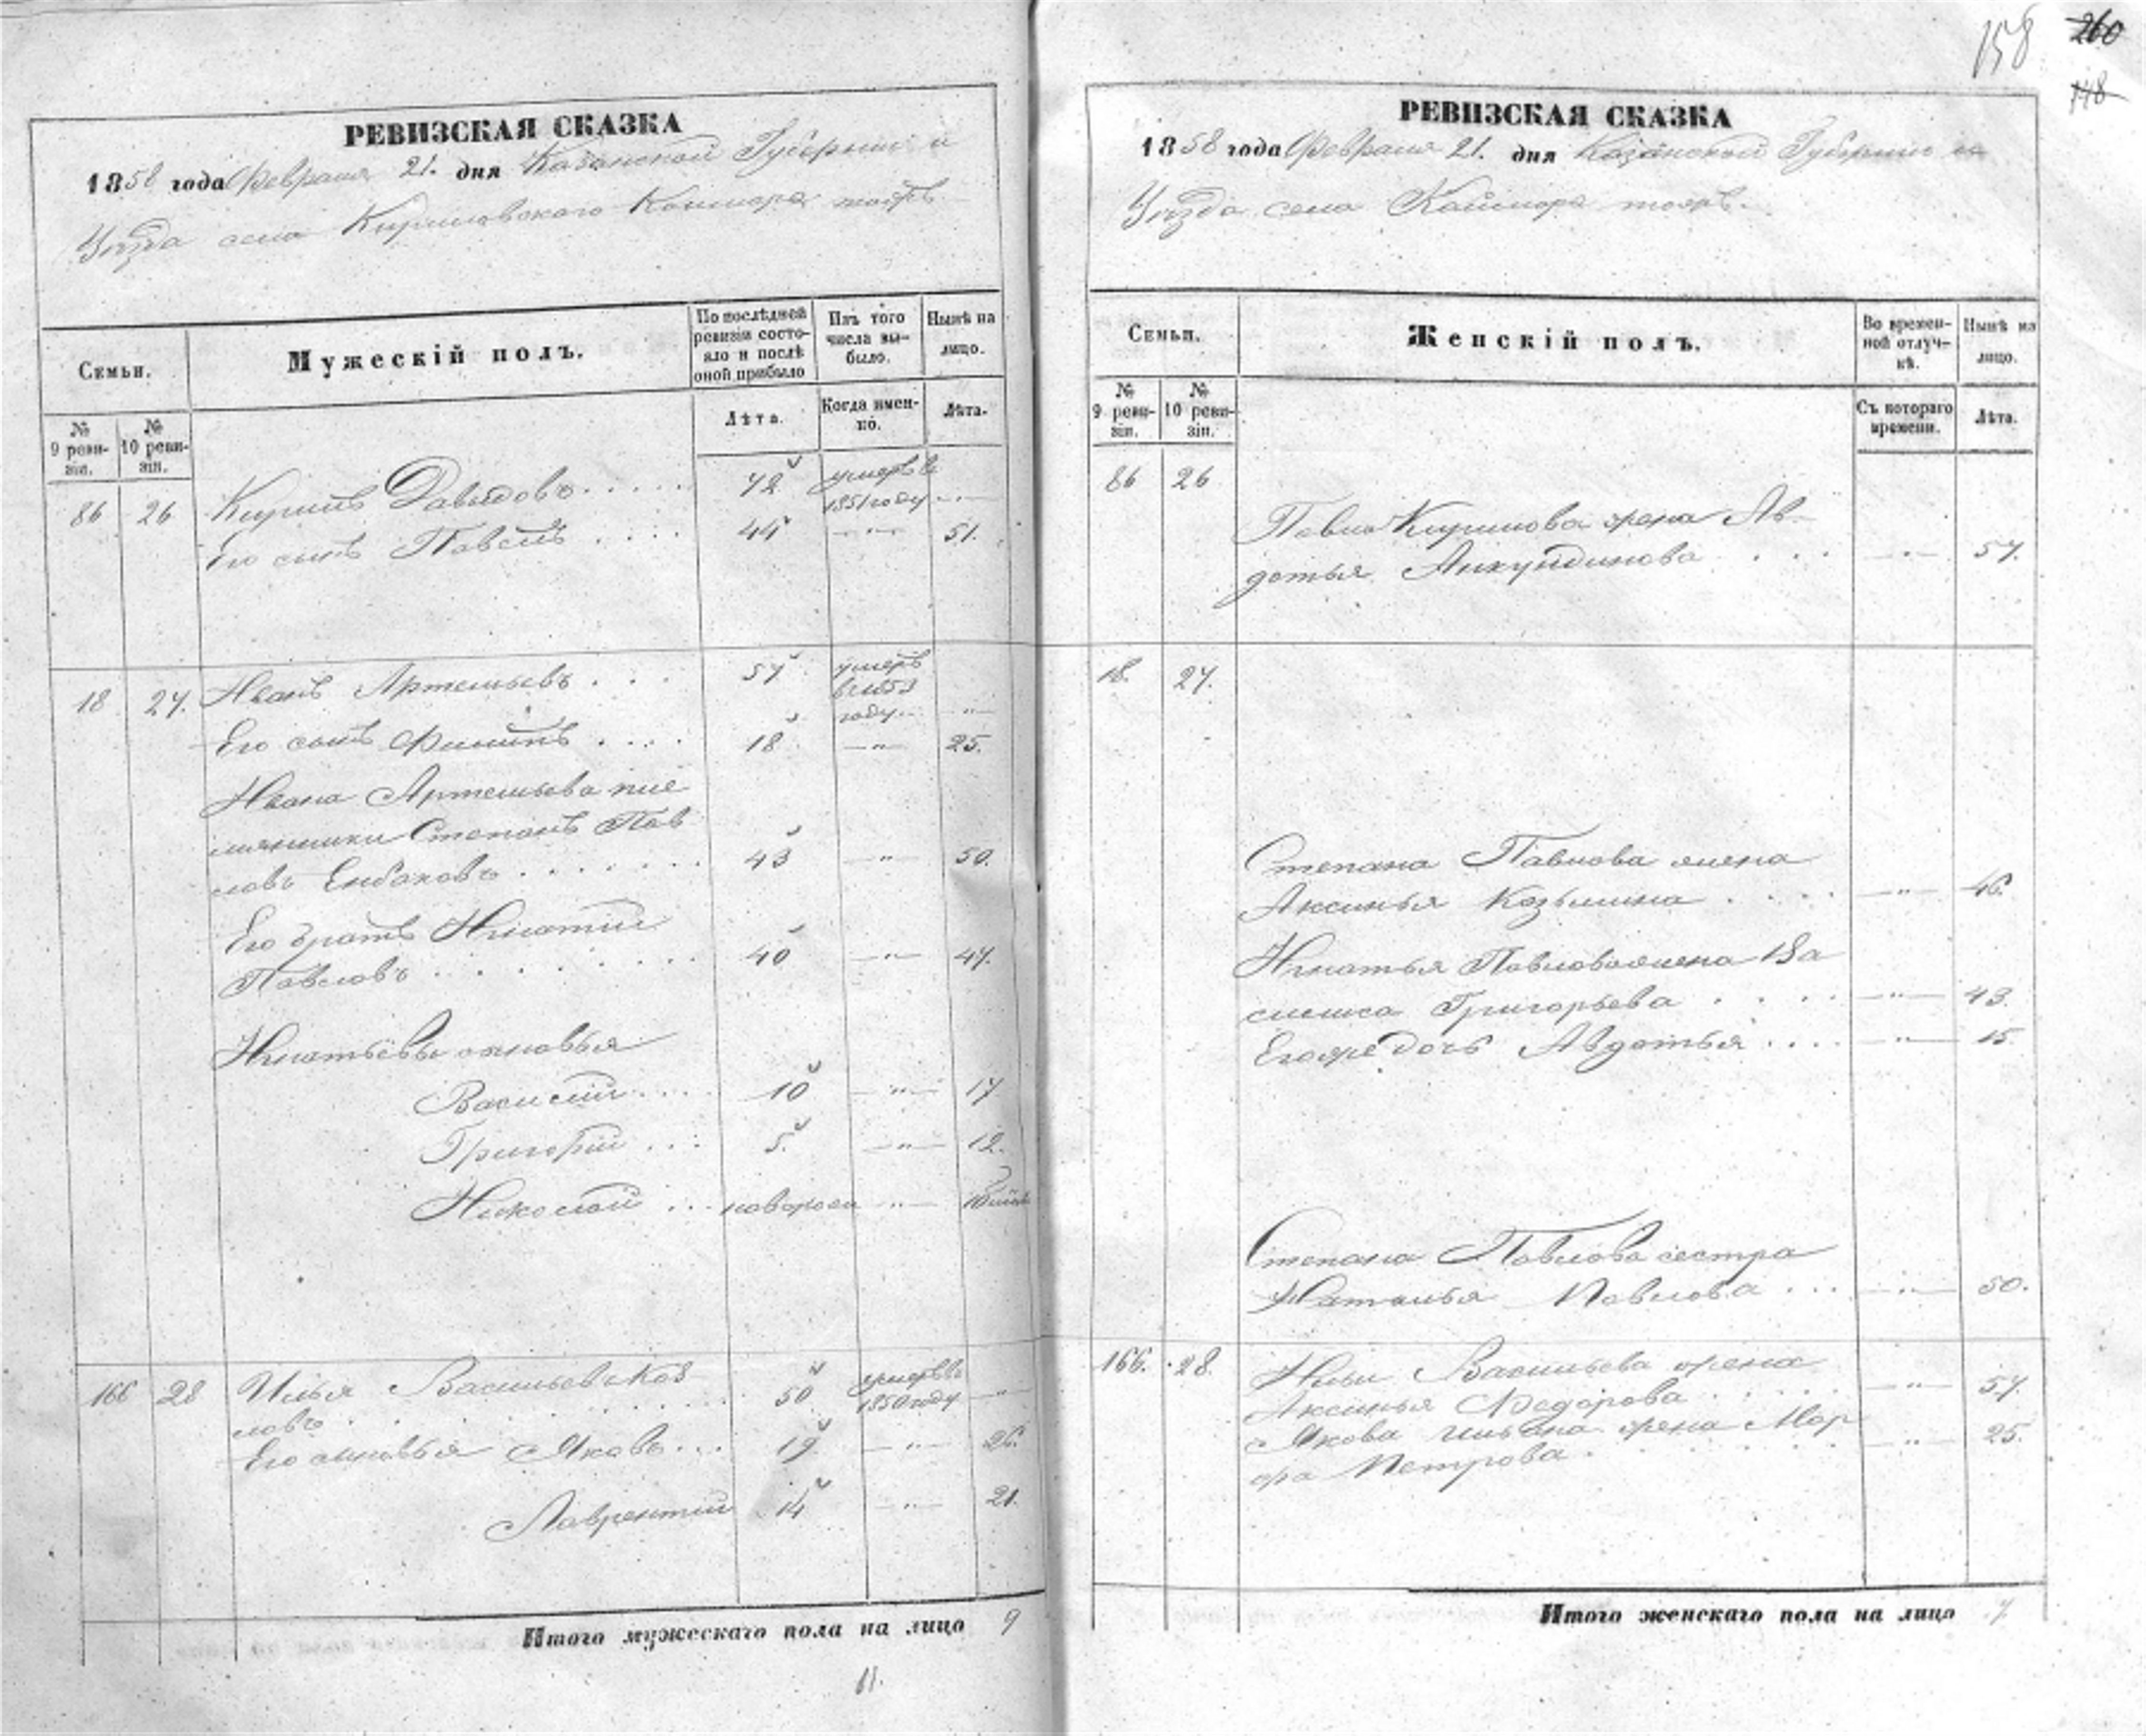 РЕВИЗСКАЯ СКАЗКА
1858 года Февраля 21. дня Казанской Губернии и
Уѣзда села Кириловскаго Каимара тожъ
Семьи.
Мужескій полъ.
По послѣдней ревизіи состояло и послѣ оной прибыло
Изъ того числа выбыло.
Нынѣ на лицо.
№ 9 ревизіи.
№ 10 ревизіи.
Лѣта.
Когда именно.
Лѣта.
86 26 Кирилъ Давыдовъ 72 умеръ в 1851 году
Его сынъ Павелъ 44 51.
18 27. Иванъ Артемьевъ 57 умеръ году
Его сынъ Филипъ 18 25.
Ивана Артемьева пле
мянники Степанъ Пав
ловъ 43 50.
Его братъ Игнатий
Павловъ 40 47.
Игнатьевы сыновья
Василий 10 17
Григорій 5. 12.
Николай новорож
166 28 Илья Васильевъ Коз
ловъ 50 умеръ въ 1850 году
Его сыновья Яковъ 19 26.
Лаврентий 14 21.
Итого мужескаго пола на лицо 9
158
260
148
РЕВИЗСКАЯ СКАЗКА
1858 года Февраля 21. дня Казанской Губернии и
Уѣзда села Каймара тожъ.
Семьи.
Женскій полъ.
Во временной отлучкѣ.
Нынѣ на лицо.
№ 9 ревизіи.
№ 10 ревизіи.
Съ котораго времени.
Лѣта.
86 26
Павла Кирилова жена Ав-
дотья Анкундинова 57.
18. 27.
Степана Павлова жена
Аксинья Козьмина 46.
Игнатья Павлова жена Ва
силиса Григорьева 43.
Егоже дочь Авдотья 15
Степана Павлова сестра
Наталья Павлова 50.
166. 28. Ильи Васильева жена
Аксинья Федорова 57.
Якова Ильина жена Мар
фа Петрова 25.
Итого женскаго пола на лицо 7